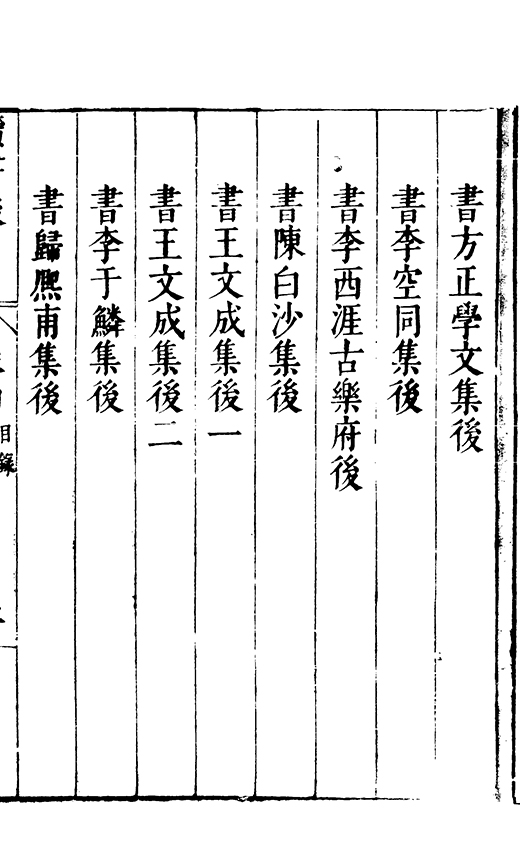 書方正學文集後
書李空同集後
書李西涯古樂府後
書陳白沙集後
書王文成集後一
書王文成集後二
書李于鱗集後
書歸熈甫集後
目錄